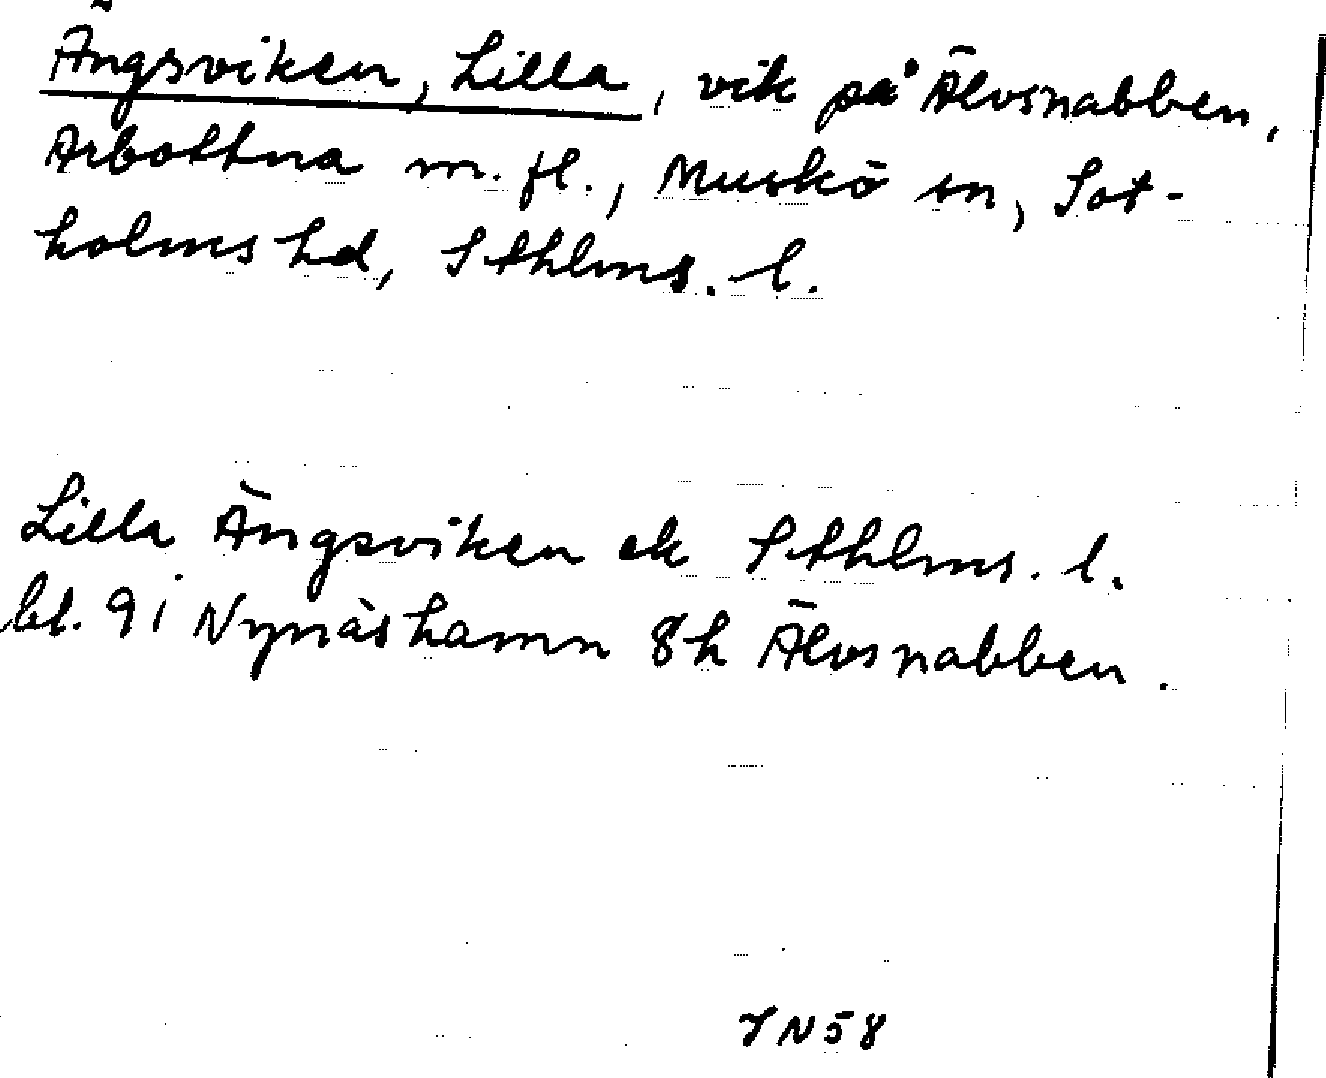 Ängsviken, Lilla, vik på Älvsnabben,
Arbottna m. fl., Muskö sn, Sot-
holms hd, Sthlms. l.
Lilla Ängsviken ek Sthlms. l.
bl. 9i Nynäshamn 8h Älvsnabben.
YN58